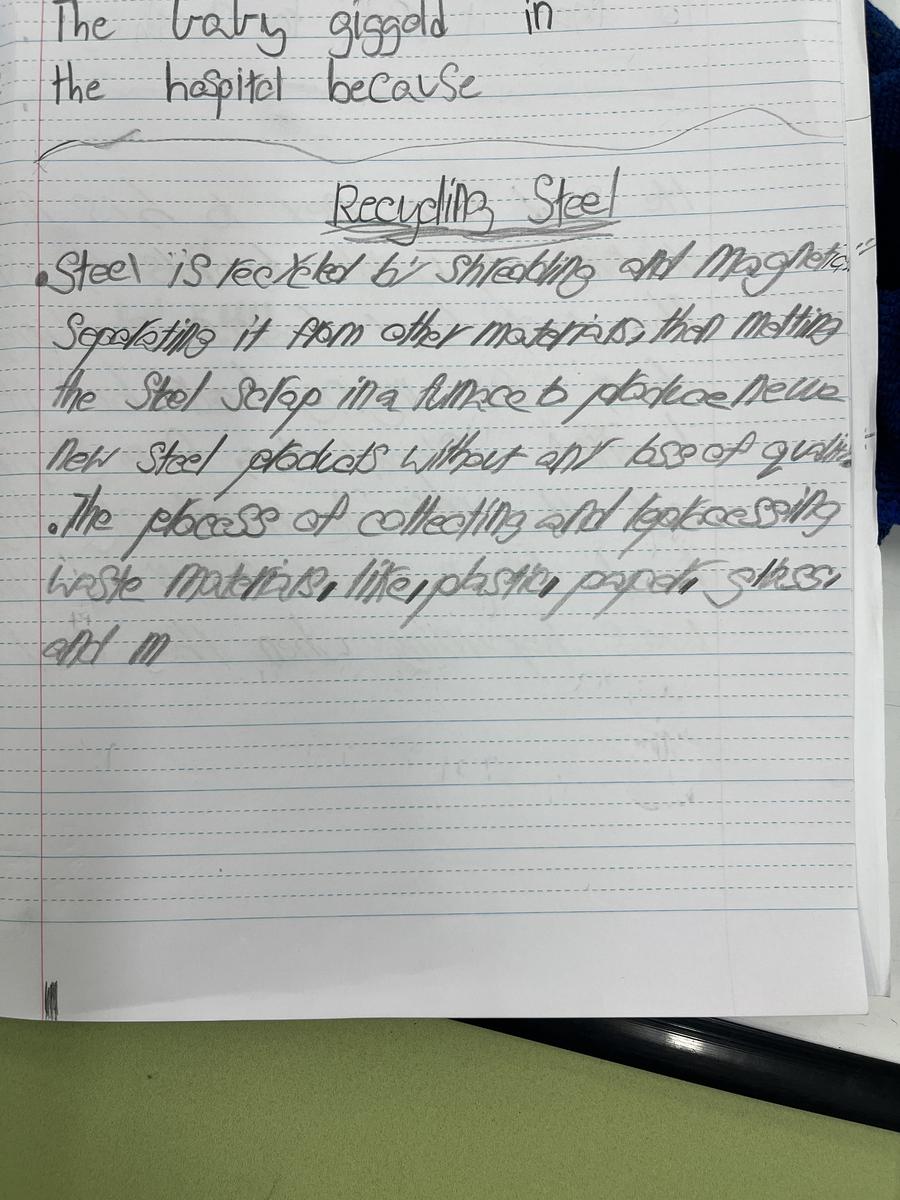 The baby giggold in
the hospital because
Recycling Steel
• Steel is recycled by shredding and magnetic
Seperating it from other materials, then melting
the Steel Scrap in a furnace to produce newe
new Steel products without any lose of quality
• The process of collecting and reprocessing
waste materials, like, plastic, paper, glass,
and m